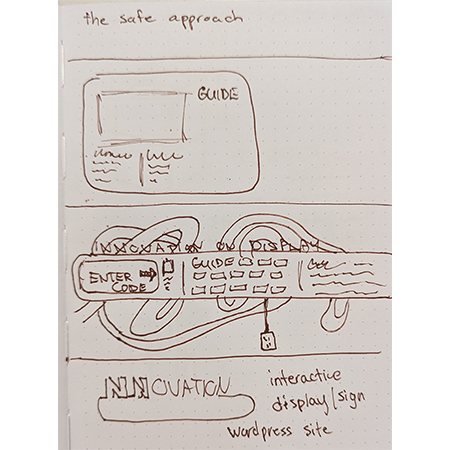 the safe approach
GUIDE
INNOVATION ON DISPLAY
ENTER
CODE
GUIDE
INNOVATION
interactive
display/sign
wordpress site